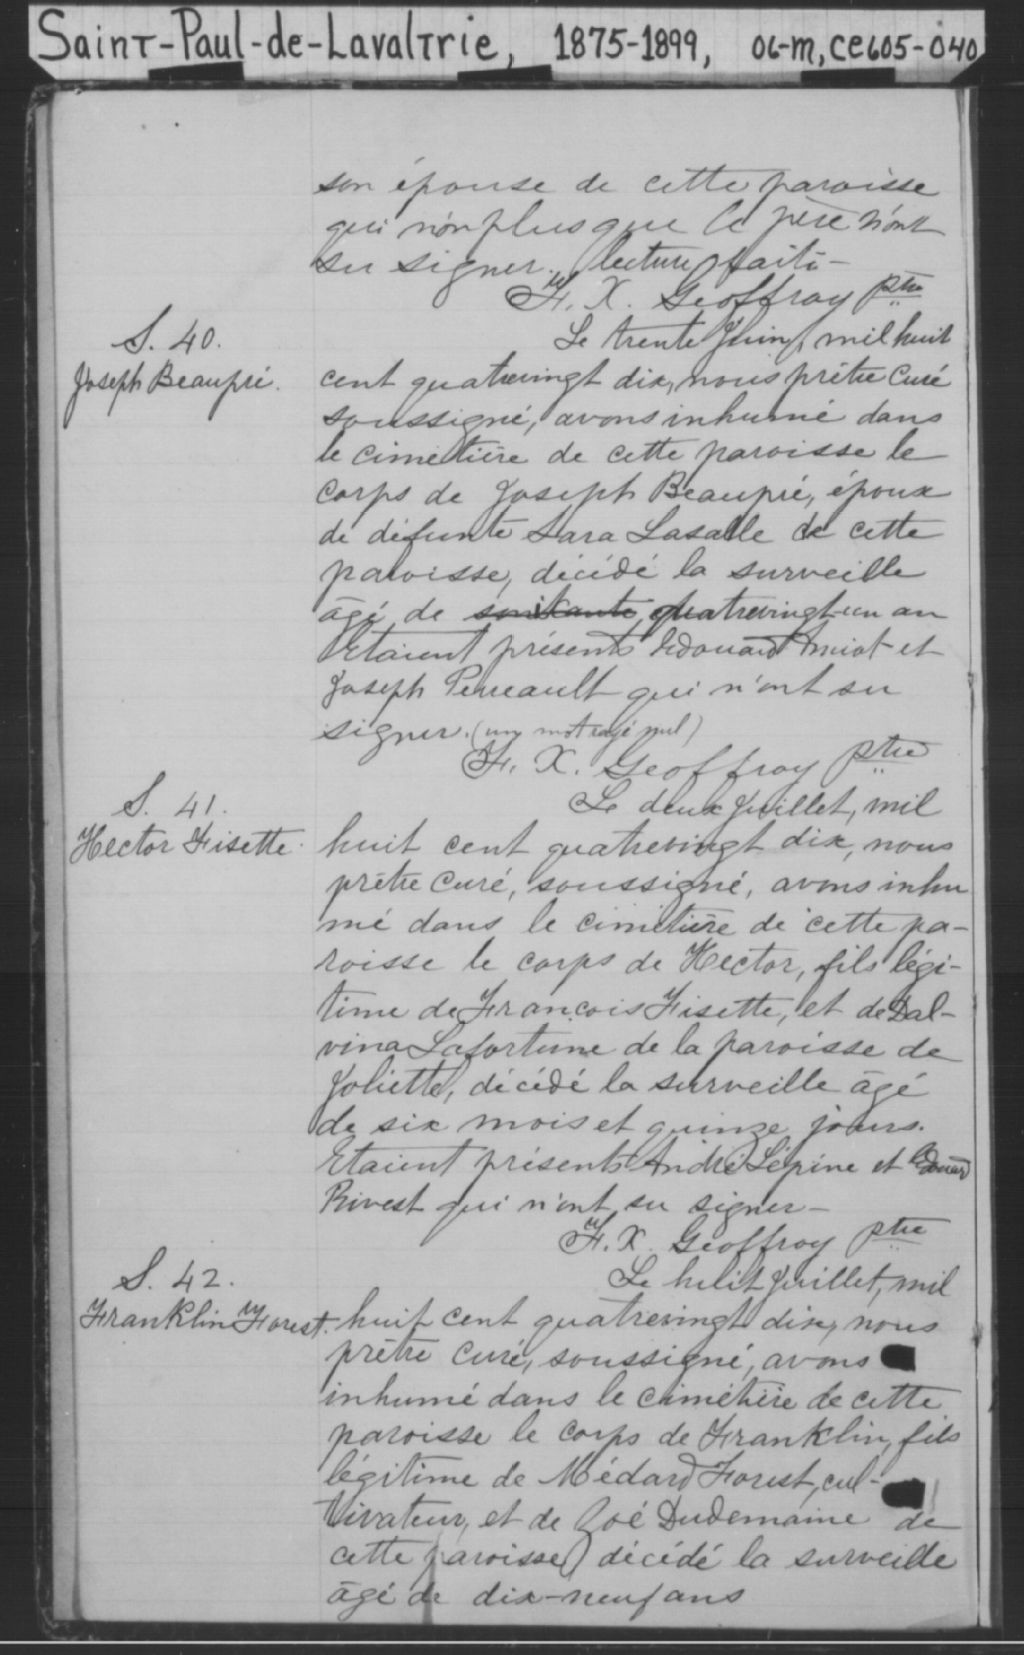 Saint-Paul-de-Lavaltrie, 1875-1899, 06-m, ce605-040
son épouse de cette paroisse
qui non plus que le père n'ont
su signer. lecture faite -
F. X. Geoffroy ptre
S. 40.
Joseph Beaupré.
Le trente Juin, mil huit
cent quatrevingt dix, nous prêtre Curé
soussigné, avons inhumé dans
le cimetière de cette paroisse le
corps de Joseph Beaupré, époux
de défunte Sara Lasalle de cette
paroisse, décédé la surveille
âgé de soixante quatrevingt-un an
Etaient présents Edouard Amiot et
Joseph Perreault qui n'ont su
signer. (un mot rayé nul)
F. X. Geoffroy ptre
S. 41.
Hector Fisette.
Le deux Juillet, mil
huit cent quatrevingt dix, nous
prêtre Curé, soussigné, avons inhu
mé dans le cimetière de cette pa-
roisse le corps de Hector, fils légi-
time de François Fisette, et de Dal-
vina Lafortune de la paroisse de
Joliette, décédé la surveille âgé
de six mois et quinze jours.
Etaient présents André Lépine et Edouard
Rivest qui n'ont su signer -
F. X. Geoffroy ptre
S. 42.
Franklin Forest.
Le huit Juillet, mil
huit cent quatrevingt dix, nous
prêtre curé, soussigné, avons
inhumé dans le cimetière de cette
paroisse le corps de Franklin, fils
légitime de Médard Forest, cul-
tivateur, et de Zoé Dudemaine de
cette paroisse décédé la surveille
âgé de dix-neuf ans